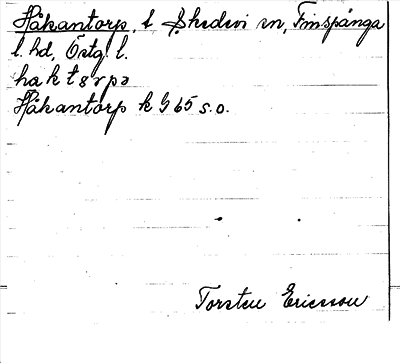 Håkantorp, t Skedevi sn, Finspånga
l. hd, Östg. l.
haktərpə
Håkantorp k G 65 s.o.
Torsten Ericsson